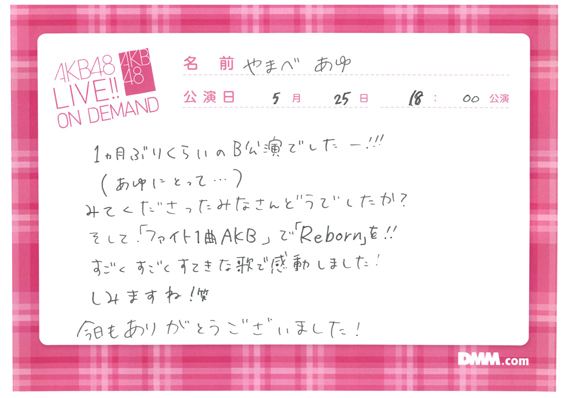 AKB48
LIVE!!
ON DEMAND
AKB
48
名前 やまべ あゆ
公演日 5月 25日 18:00 公演
1ヵ月ぶりくらいのB公演でしたー!!!
(あゆにとって…)
みてくださったみなさんどうでしたか?
そして!「ファイト1曲AKB」で「Reborn」を!!
すごくすごくすてきな歌で感動しました!
しみますね!笑
今日もありがとうございました!
DMM.com